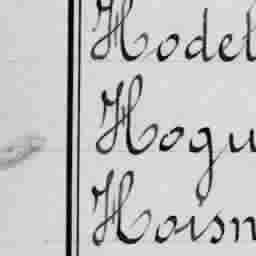 Hodel
Hogu
Hoisn